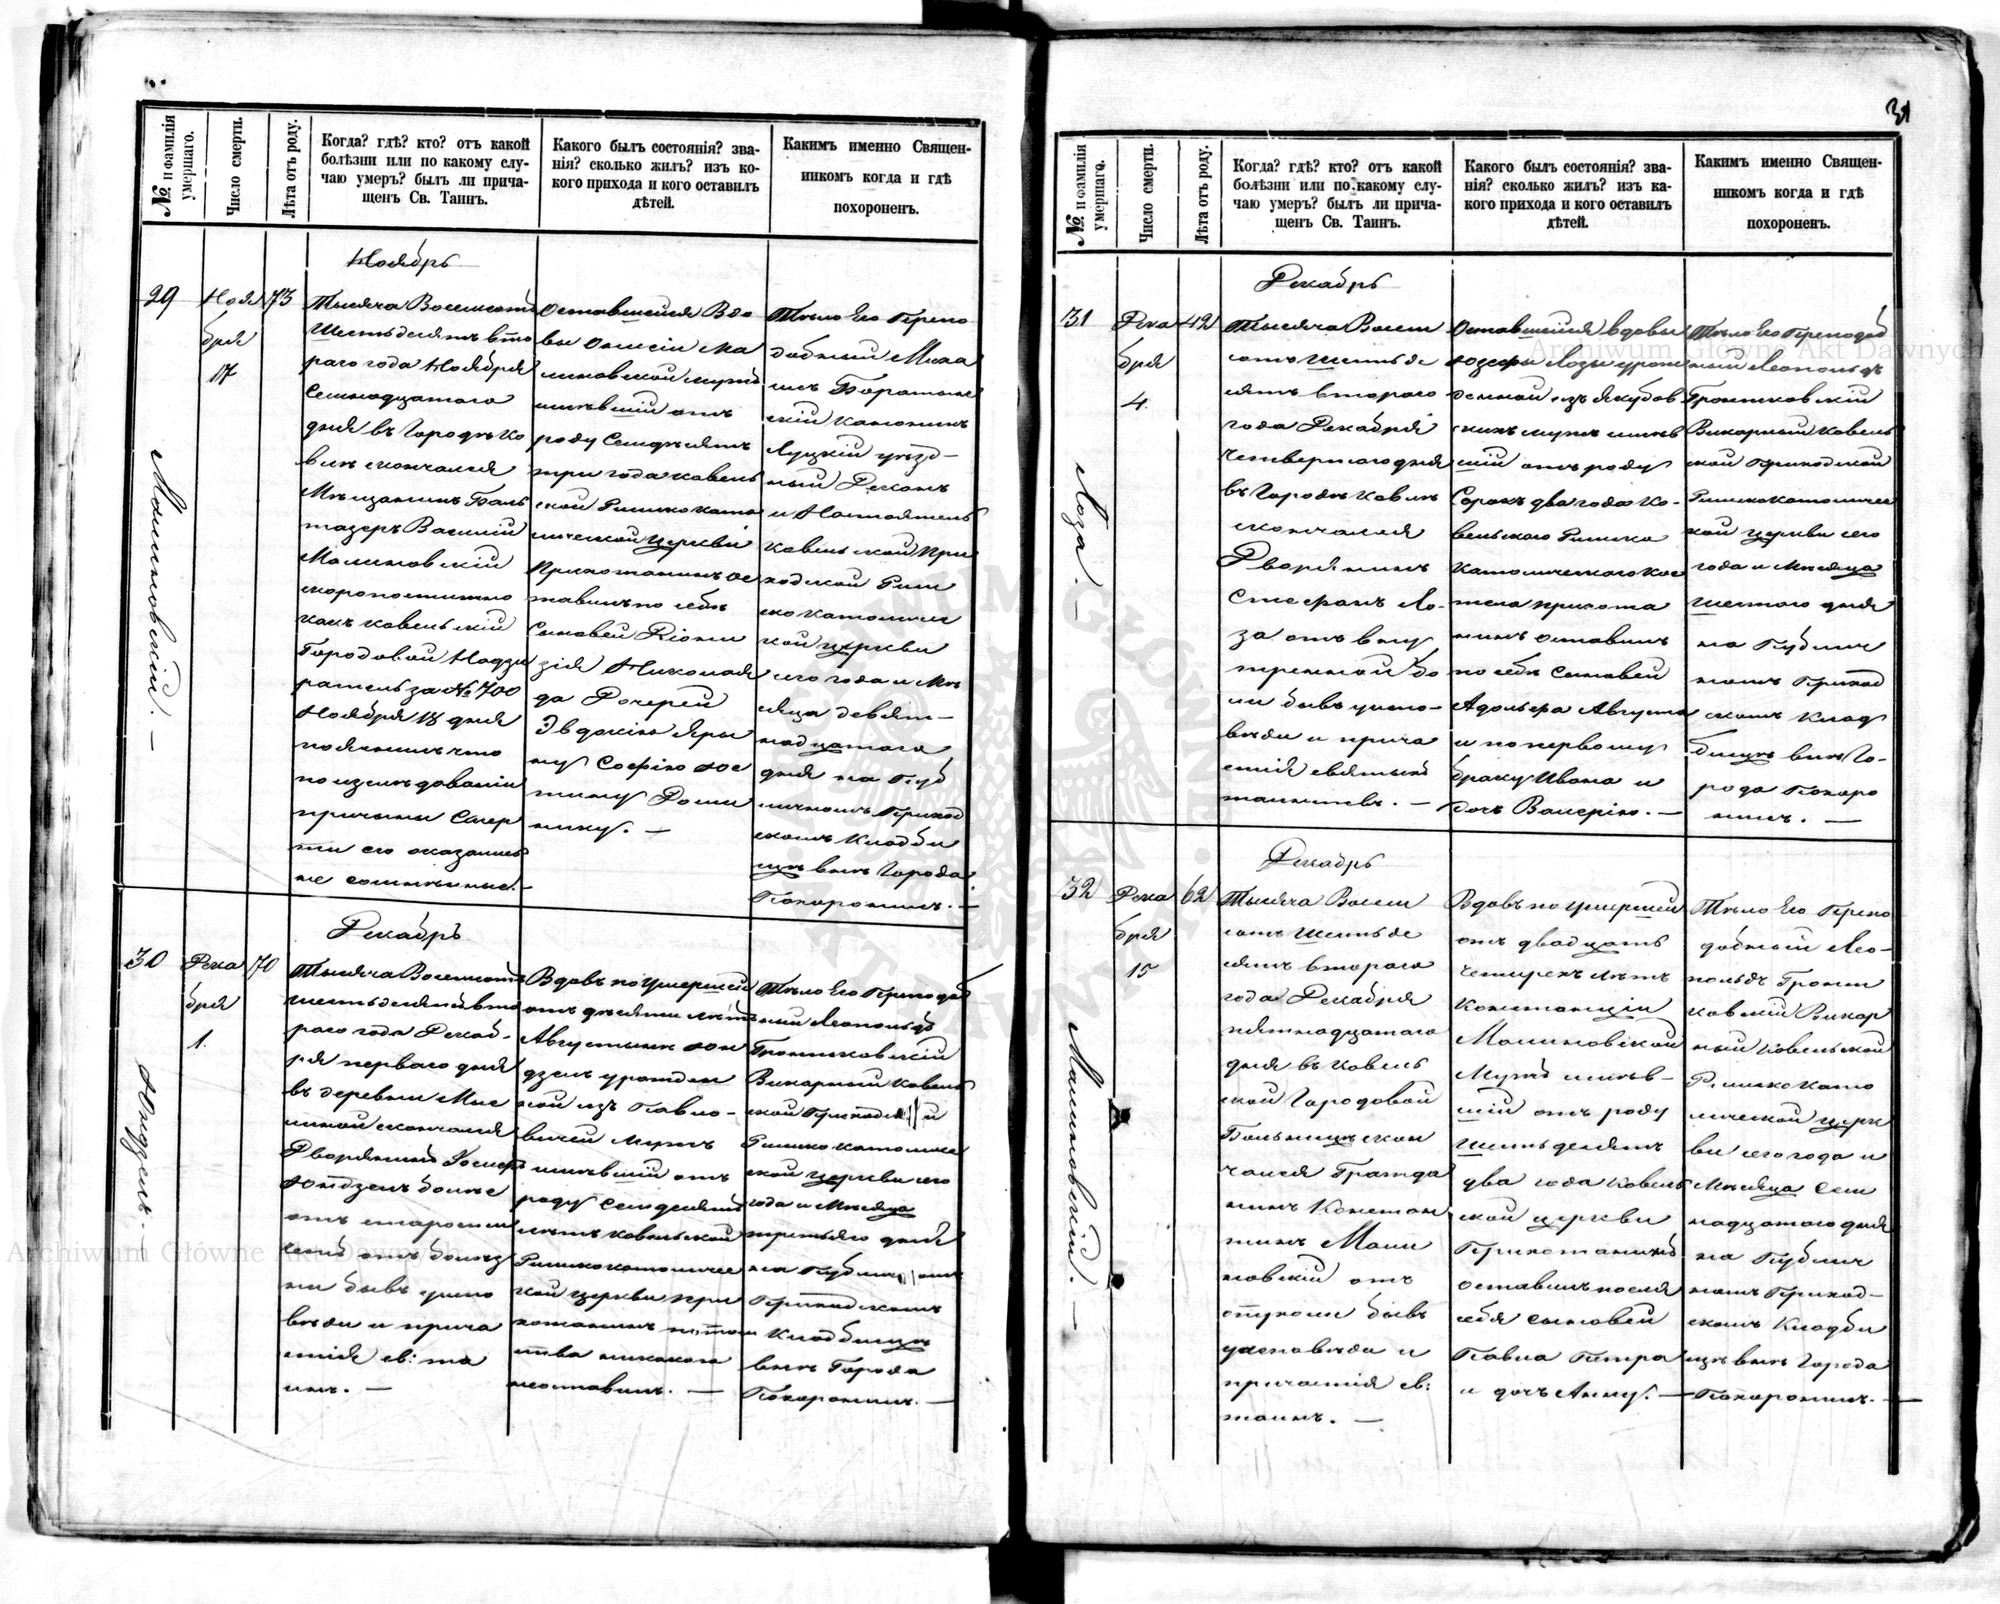 № и фамилія умершаго.
Число смерти.
Лѣта отъ роду.
Когда? гдѣ? кто? отъ какой
болѣзни или по какому слу-
чаю умеръ? былъ ли прича-
щенъ Св. Таинъ.
Какого былъ состоянія? зва-
нія? сколько жилъ? изъ ко-
кого прихода и кого оставилъ
дѣтей.
Какимъ именно Священ-
никомъ когда и гдѣ
похороненъ.
29
Ноя
бря
17
Малиновскій. —
73
Ноябрь
Тысяча Восемсотъ
Шестьдесятъ вто
раго года Ноября
Семнадцатаго
дня въ Городѣ Ко
велѣ скончался
Мѣщанинъ Баль
тазеръ Василій
Малиновскій
скоропостижно
какъ Ковельскій
Городовой Надзи
ратель за № 700
Ноября 18 дня
пояснилъ что
по изслѣдованіи
причины Смер
ти его оказались
не сомнѣнные. —
Оставшейся Вдо
вы Ма
линовской мужъ
имѣвшій отъ
роду Семдесятъ
три года Ковель
ской Римско като
лической Церкви
Прихожанинъ ос
тавилъ по себѣ
Сыновей Діони
зія Николая
да Дочерей
Эвдокію Яры
ну Софію Юс
тину Доми
нику. —
Тѣло Его Препо
добный Миха
илъ Баратын
скій Каноникъ
Луцкій уѣзд—
ный Деканъ
и Настоятель
Ковельской При
ходской Рим
ско католичес
кой церкви
сего года и Мѣ
сяца девят—
надцатаго
дня на Пуб
личномъ Приход
скомъ Кладби
щѣ внѣ Города
Похоронилъ. —
30
Дека
бря
1.
Юндзелъ. —
70
Декабрь
Тысяча Восемсотъ
шестьдесятъ вто
раго года Декаб-
ря перваго дня
въ деревни Мыс
скончался
Дворянинъ Іосифъ
Юндзелъ болѣе
отъ старости
чемъ отъ болѣз
ни бывъ у испо
вѣди и прича
стія св: та
инъ. —
Вдовъ по умершей
отъ десяти лѣтъ
Августынѣ Юн
дзелъ урожден
ной изъ Павло-
вичей мужъ
имѣвшій отъ
роду Семдесятъ
лѣтъ Ковельской
Римско католичес
кой церкви при
хожанинъ потом
ства никакого
неоставилъ. —
Тѣло Его Преподоб
ный Леопольдъ
Громтковскій
Викарный Ковель
ской Приходской
Римско католичес
кой церкви сего
года и Мѣсяца
третьяго дня
на Публичномъ
Приходскомъ
Кладбищѣ
внѣ Города
Похоронилъ. —
31
№ и фамилія умершаго.
Число смерти.
Лѣта отъ роду.
Когда? гдѣ? кто? отъ какой
болѣзни или по какому слу-
чаю умеръ? былъ ли прича-
щенъ Св. Таинъ.
Какого былъ состоянія? зва-
нія? сколько жилъ? изъ ка-
кого прихода и кого оставилъ
дѣтей.
Какимъ именно Священ-
никомъ когда и гдѣ
похороненъ.
31
Дека
бря
4.
Лоза. —
42
Декабрь
Тысяча Восем
сотъ Шестьде
сятъ втораго
года Декабря
Четвертаго дня
въ Городѣ Ковелѣ
скончался
Дворянинъ
Стефанъ Ло-
за отъ вну
тренной бо
ли бывъ у испо-
вѣди и прича
стія святыхъ
таинствъ. —
Оставшейся вдовы
Юзефы Лозы урож
денной изъ Якубов
скихъ мужъ имѣв
шій отъ роду
Сорокъ два года Ко-
вельскаго Римско
Католическаго Кос
тела прихожа
нинъ оставилъ
по себѣ Сыновей
Адольфа Августа
и по первому
браку Ивана и
дочь Валерію. —
Тѣло Его Преподоб
ный Леопольдъ
Громтковскій
Викарный Ковель
ской Приходской
Римско Католичес
кой церкви сего
года и Мѣсяца
Шестаго дня
на Публич
номъ Приход
скомъ Клад
бищѣ внѣ Го-
рода Похоро
нилъ. —
32
Дека
бря
15
Малиновскій. —
62
Декабрь
Тысяча Восем
сотъ Шестьде
сятъ втораго
года Декабря
пятнадцатаго
дня въ Ковель
ской Городовой
Больницѣ скон
чался Гражда
нинъ Констан
тинъ Мали
новскій отъ
опухоли бывъ
у исповѣди и
причастія св:
таинъ. —
Вдовъ по умершей
отъ двадцать
Четырехъ лѣтъ
Констанціи
Малиновской
Мужъ имѣв-
шій отъ роду
Шестьдесятъ
два года Ковель
ской церкви
Прихожанинъ
оставилъ послѣ
себя сыновей
Павла Петра
и дочь Анну. —
Тѣло Его Препо
добный Лео-
польдъ Громт
ковскій Викар
ный Ковельской
Римско като
лической церк
ви сего года и
Мѣсяца Сем
надцатаго дня
на Публич
номъ Приход-
скомъ Кладби
щѣ внѣ Города
Похоронилъ. —
Archiwum Główne Akt Dawnych
Archiwum Główne Akt Dawnych